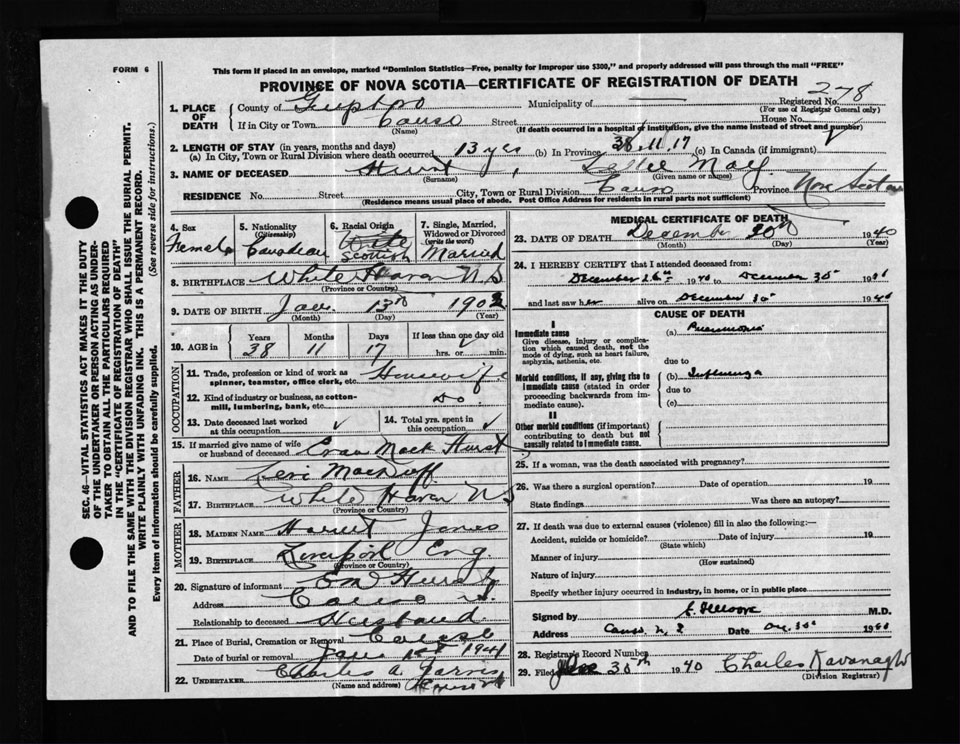 FORM 6
This form if placed in an envelope, marked "Dominion Statistics—Free, penalty for improper use $300," and properly addressed will pass through the mail "FREE"
PROVINCE OF NOVA SCOTIA—CERTIFICATE OF REGISTRATION OF DEATH
Registered No. 278
(For use of Registrar General only)
1. PLACE OF DEATH County of Municipality of —
If in City or Town Canso Street House No.
(Name) (If death occurred in a hospital or institution, give the name instead of street and number)
2. LENGTH OF STAY (in years, months and days)
(a) In City, Town or Rural Division where death occurred 13 yrs (b) In Province 38.11.17 (c) In Canada (if immigrant)
3. NAME OF DECEASED Hurst, May
(Surname) (Given name or names)
RESIDENCE No. Street City, Town or Rural Division Canso Province Nova Scotia
(Residence means usual place of abode. Post Office Address for residents in rural parts not sufficient)
4. Sex Female
5. Nationality (Citizenship) Canadian
6. Racial Origin White Scottish
7. Single, Married, Widowed or Divorced (write the word) Married
8. BIRTHPLACE White Haven N.S
(Province or Country)
9. DATE OF BIRTH Jan 13th 1902
(Month) (Day) (Year)
10. AGE in Years Months Days If less than one day old
38 11 17 hrs. or min.
OCCUPATION
11. Trade, profession or kind of work as spinner, teamster, office clerk, etc. Housewife
12. Kind of industry or business, as cotton-mill, lumbering, bank, etc. Do
13. Date deceased last worked at this occupation
14. Total yrs. spent in this occupation
15. If married give name of wife or husband of deceased Mack Hurst
FATHER
16. NAME Levi MacDuff
17. BIRTHPLACE White Haven N S
(Province or Country)
MOTHER
18. MAIDEN NAME Harriet Jones
19. BIRTHPLACE Liverpool Eng
(Province or Country)
20. Signature of informant Hurst
Address Canso
Relationship to deceased Husband
21. Place of Burial, Cremation or Removal Canso
Date of burial or removal Jan 1st 1941
22. UNDERTAKER Charles A.
(Name and address)
MEDICAL CERTIFICATE OF DEATH
23. DATE OF DEATH December 30th 1940
(Month) (Day) (Year)
24. I HEREBY CERTIFY that I attended deceased from:
December 26th 1940 to December 30th 1940
and last saw her alive on December 30th 1940
CAUSE OF DEATH
I
Immediate cause (a) Pneumonia
Give disease, injury or complication which caused death, not the mode of dying, such as heart failure, asphyxia, asthenia, etc.
due to
Morbid conditions, if any, giving rise to immediate cause (stated in order proceeding backwards from immediate cause). (b) Influenza
due to
(c)
II
Other morbid conditions (if important) contributing to death but not causally related to immediate cause.
25. If a woman, was the death associated with pregnancy?
26. Was there a surgical operation? Date of operation 19
State findings Was there an autopsy?
27. If death was due to external causes (violence) fill in also the following:—
Accident, suicide or homicide? Date of injury 19
(State which)
Manner of injury
(How sustained)
Nature of injury
Specify whether injury occurred in industry, in home, or in public place
Signed by M.D.
Address Canso N.S Date Dec 30th 1940
28. Registrar's Record Number
29. Filed Dec 30th 1940 Charles Kavanagh
(Division Registrar)
SEC. 46—VITAL STATISTICS ACT MAKES IT THE DUTY
OF THE UNDERTAKER OR PERSON ACTING AS UNDER-
TAKER TO OBTAIN ALL THE PARTICULARS REQUIRED
IN THE "CERTIFICATE OF REGISTRATION OF DEATH"
AND TO FILE THE SAME WITH THE DIVISION REGISTRAR WHO SHALL ISSUE THE BURIAL PERMIT.
WRITE PLAINLY WITH UNFADING INK. THIS IS A PERMANENT RECORD.
Every item of information should be carefully supplied. (See reverse side for instructions.)